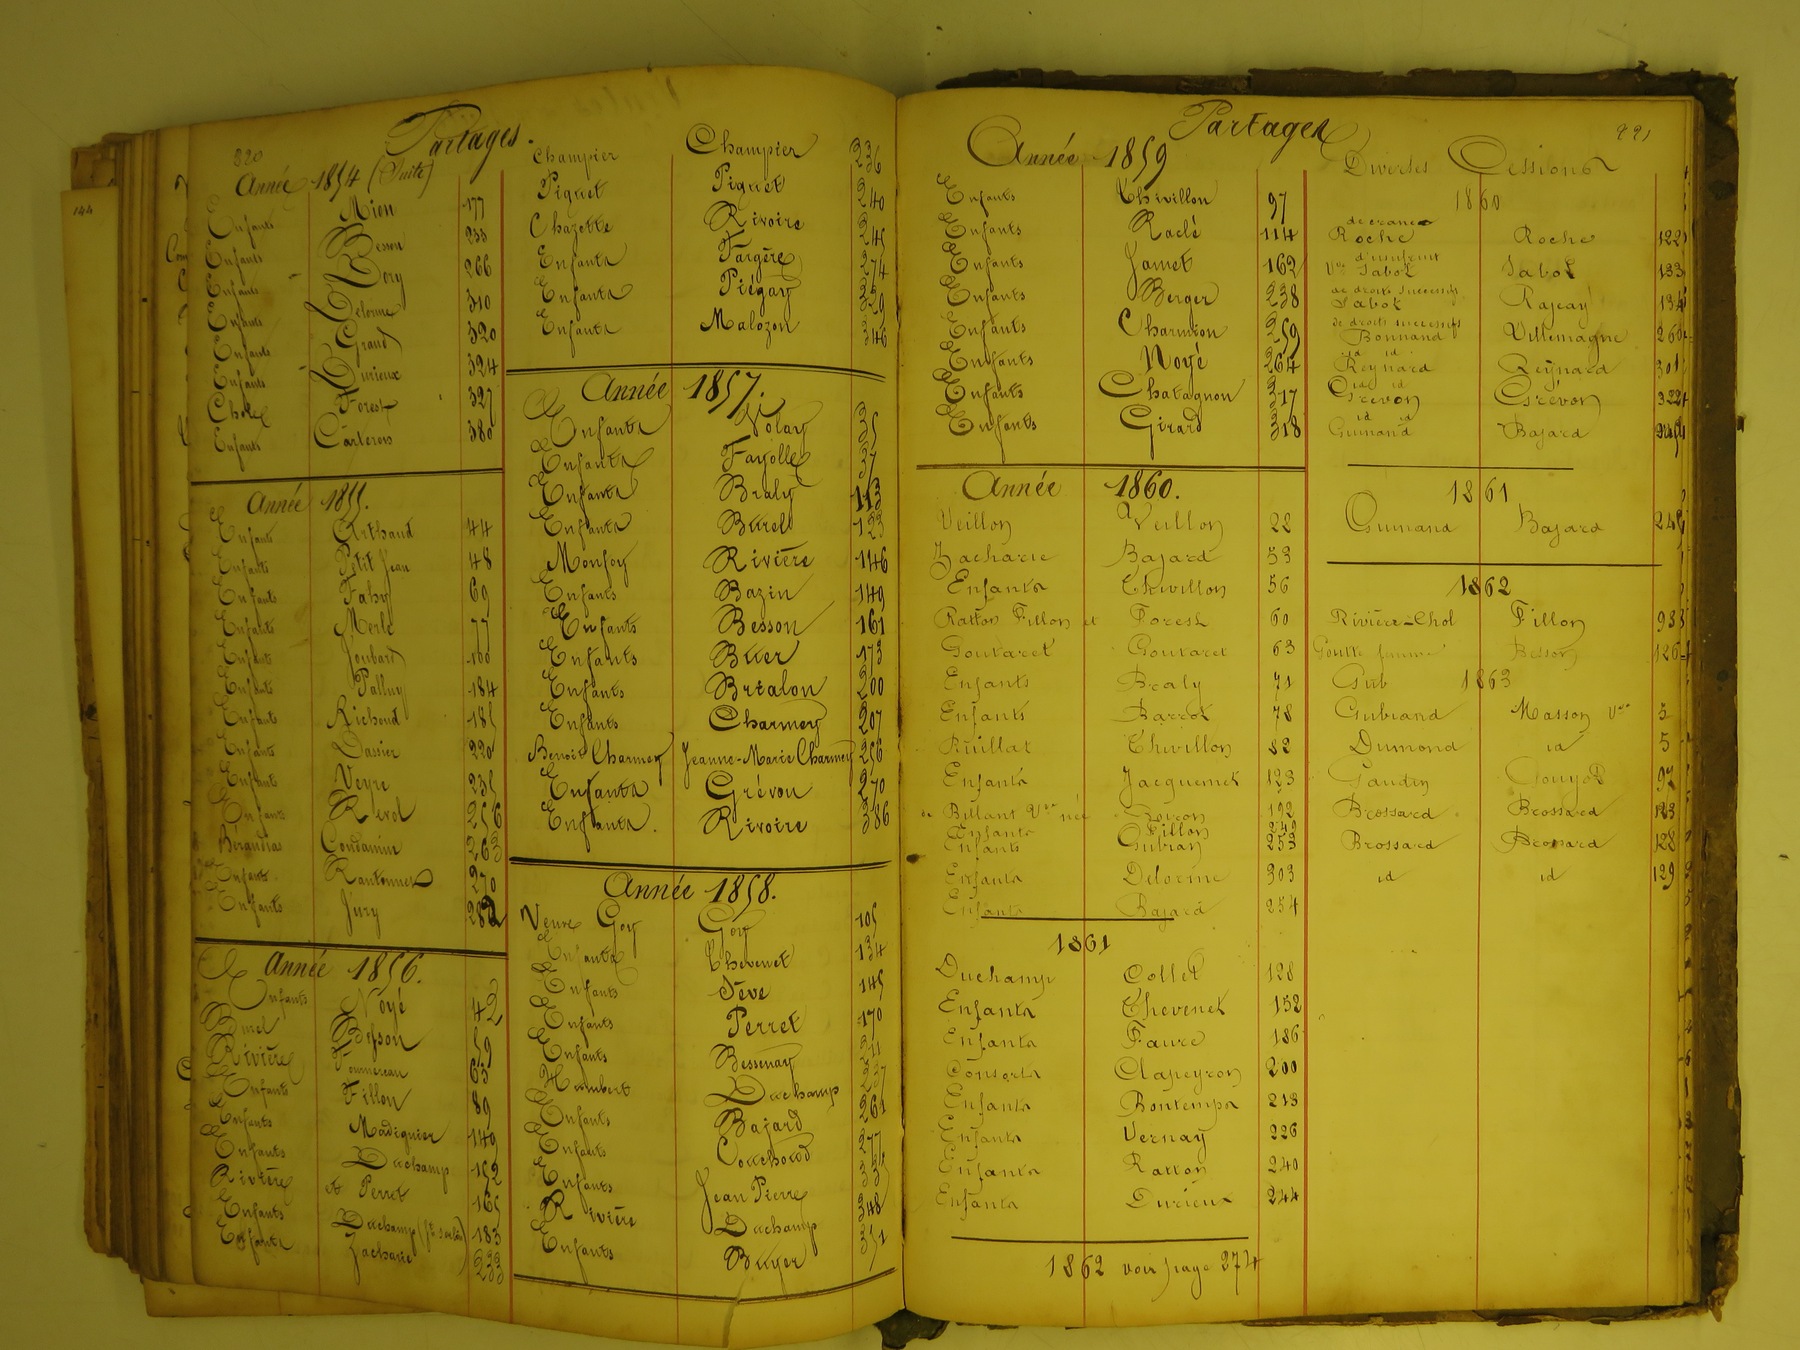 144
320
Partages.
Année 1854 (Suite)
Enfants Mion 177
Enfants Besson 255
Enfants Bory 266
Enfants Delorme 310
Enfants Grand 320
Enfants Durieux 324
Forest 327
Enfants 380
Année 1855.
Enfants Arthaud 44
Enfants Petit Jean 48
Enfants 69
Enfants Merle 77
Enfants Joubard 100
Enfants Palluy 184
Enfants Richoud 185
Enfants Dassier 220
Enfants Veyre 235
Enfants Revol 256
Condamin 263
Enfants 270
Enfants Jury 282
Année 1856.
Enfants Noyé 42
Burel Besson 59
Rivière 65
Enfants Fillon 89
Enfants Madignier 149
Enfants Duchamp 152
Rivière et Perret 165
Enfants Duchamp 183
Enfants Zacharie 233
Champier Champier 236
Piguet Piguet 240
Chazette Rivoire 245
Enfants Fargère 274
Enfants Piégay 329
Enfants Malozon 346
Année 1857.
Enfants Volay 35
Enfants Fayolle 37
Enfants Braly 113
Enfants Burel 123
Monfoy Rivière 146
Enfants Bazin 149
Enfants Besson 161
Enfants Buer 173
Enfants Brialon 200
Enfants Charmey 207
Benoit Charmey Jeanne-Marie Charmey 256
Enfants Grévon 270
Enfants. Rivoire 386
Année 1858.
Veuve Goy Goy 105
Enfants Chevenet 134
Enfants Sève 145
Enfants Perret 170
Enfants Bessenay 211
Humbert Duchamp
Enfants Bajard 261
Enfants Couchoud 277
Enfants Jean Pierre
Rivière Duchamp 348
Enfants Buyer 351
Partages
221
Année 1859
Enfants Thivillon 97
Enfants Raclé 114
Enfants Jamet 162
Enfants Berger 238
Enfants Charmion 259
Enfants Noyé 264
Enfants Chatagnon 317
Enfants Girard 318
Année 1860.
Veillon Veillon 22
Zacharie Bajard 53
Enfants Thivillon 56
Ratton Fillon et Forest 60
Goutaret Goutaret 63
Enfants Braly 71
Enfants Barrot 78
Ruillat Thivillon 82
Enfants Jacquemet 123
Billant Vve née 192
Enfants Fillon 242
Enfants Gubian 253
Enfants Delorme 303
Enfants Bajard 254
1861
Duchamp Collet 128
Enfants Thevenet 152
Enfants Faure 186
Consorts Clapeyron 200
Enfants Bontemps 213
Enfants Vernay 226
Enfants Ratton 240
Enfants Durieux 244
1862 voir page 274
Diverses Cessions
1860
de créance
Roche Roche 122
d'usufruit
Vve Jabot Jabot 133
de droits successifs
Jabot Rageay 134
de droits successifs
Bonnand Villemagne 260
id id
Reynard Reynard 301
id id
Grévon Grévon 322
id id
Guinand Bajard
1861
Guinand Bajard 242
1862
Rivière-Chol Fillon 93
Goutte femme Besson 126
Gub 1863
Gubrand Masson Vve 5
Dumond id 5
Gaudin Goujod 97
Brossard Brossard 123
Brossard Brossard 128
id id 129